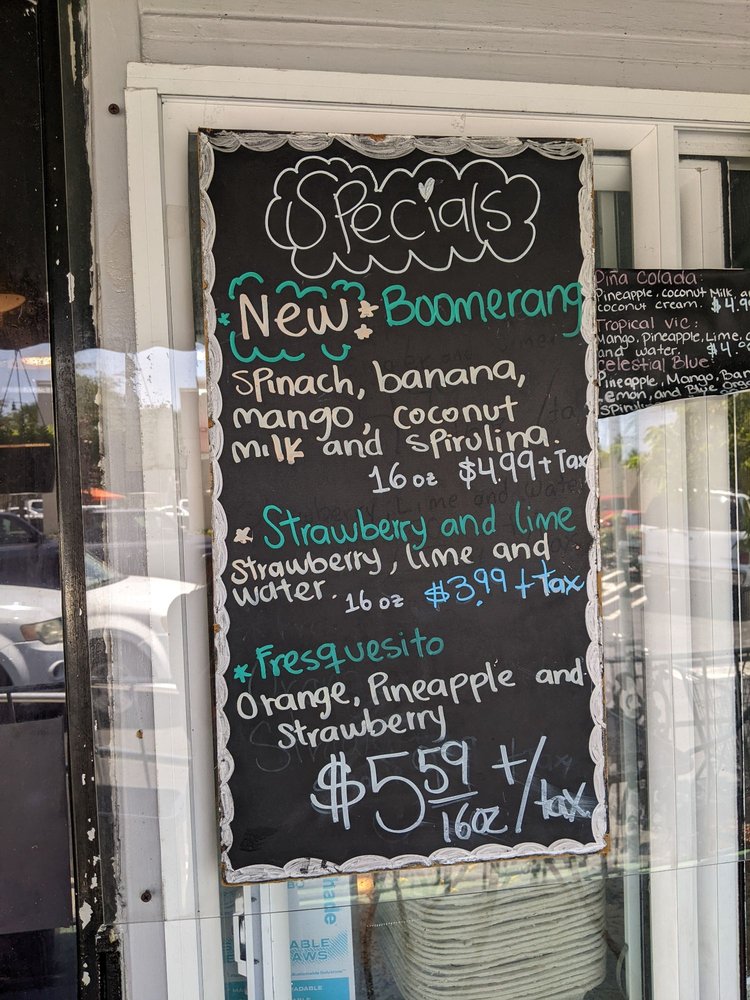 Specials
New Boomerang
Spinach, banana,
mango, coconut
milk and spirulina.
16 oz $4.99 + Tax
Strawberry and lime
Strawberry, lime and
water. 16 oz $3.99 + tax
Fresquesito
Orange, Pineapple and
Strawberry
$5.59 +/tax
16oz
Piña Colada:
Pineapple, coconut Milk
coconut cream. $4.9
Tropical Vic:
Mango, Pineapple, Lime,
and water. $4.
Celestial Blue:
Pineapple, Mango, Ban
emon, and Blue
spirul
ABLE
AWS